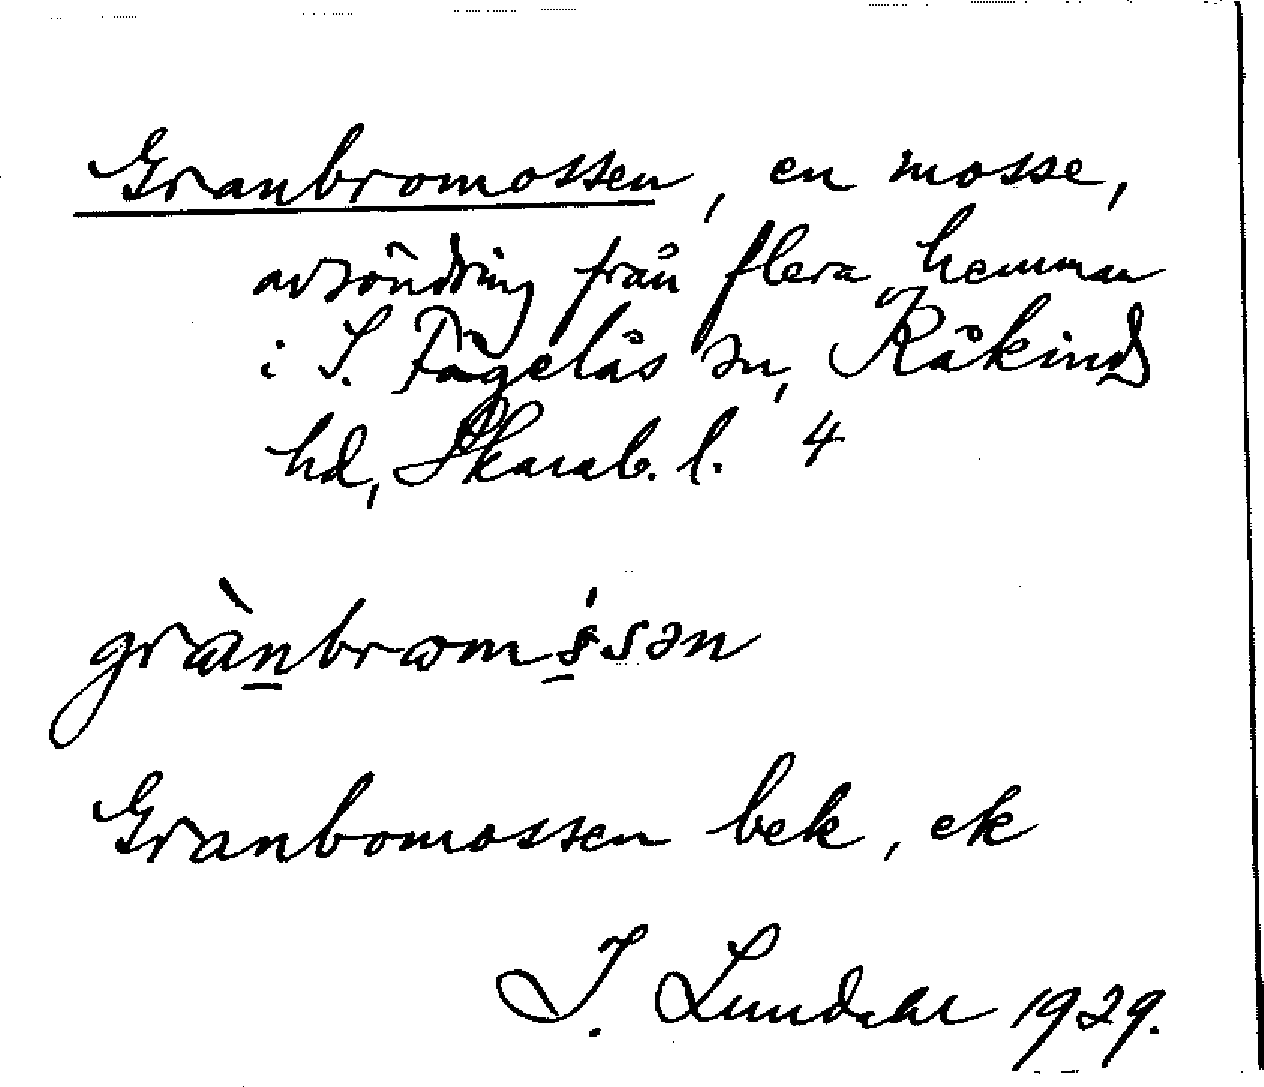 Granbromossen, en mosse,
avsöndring från flera hemman
i S. Fågelås sn, Kåkinds
hd, Skarab. l. 4
grànbrɷmśsən
Granbomossen bek, ek
I. Lundahl 1929.